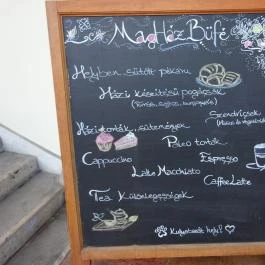 MagHáz Büfé
Helyben sütött pékáru
Házi készítésű pogácsák
Szendvicsek
Házi torták, sütemények
Paleo torták
Cappuccino
Espresso
Latte Macchiato
Caffe Latte
Tea Különlegességek
Kutyabarát hely!